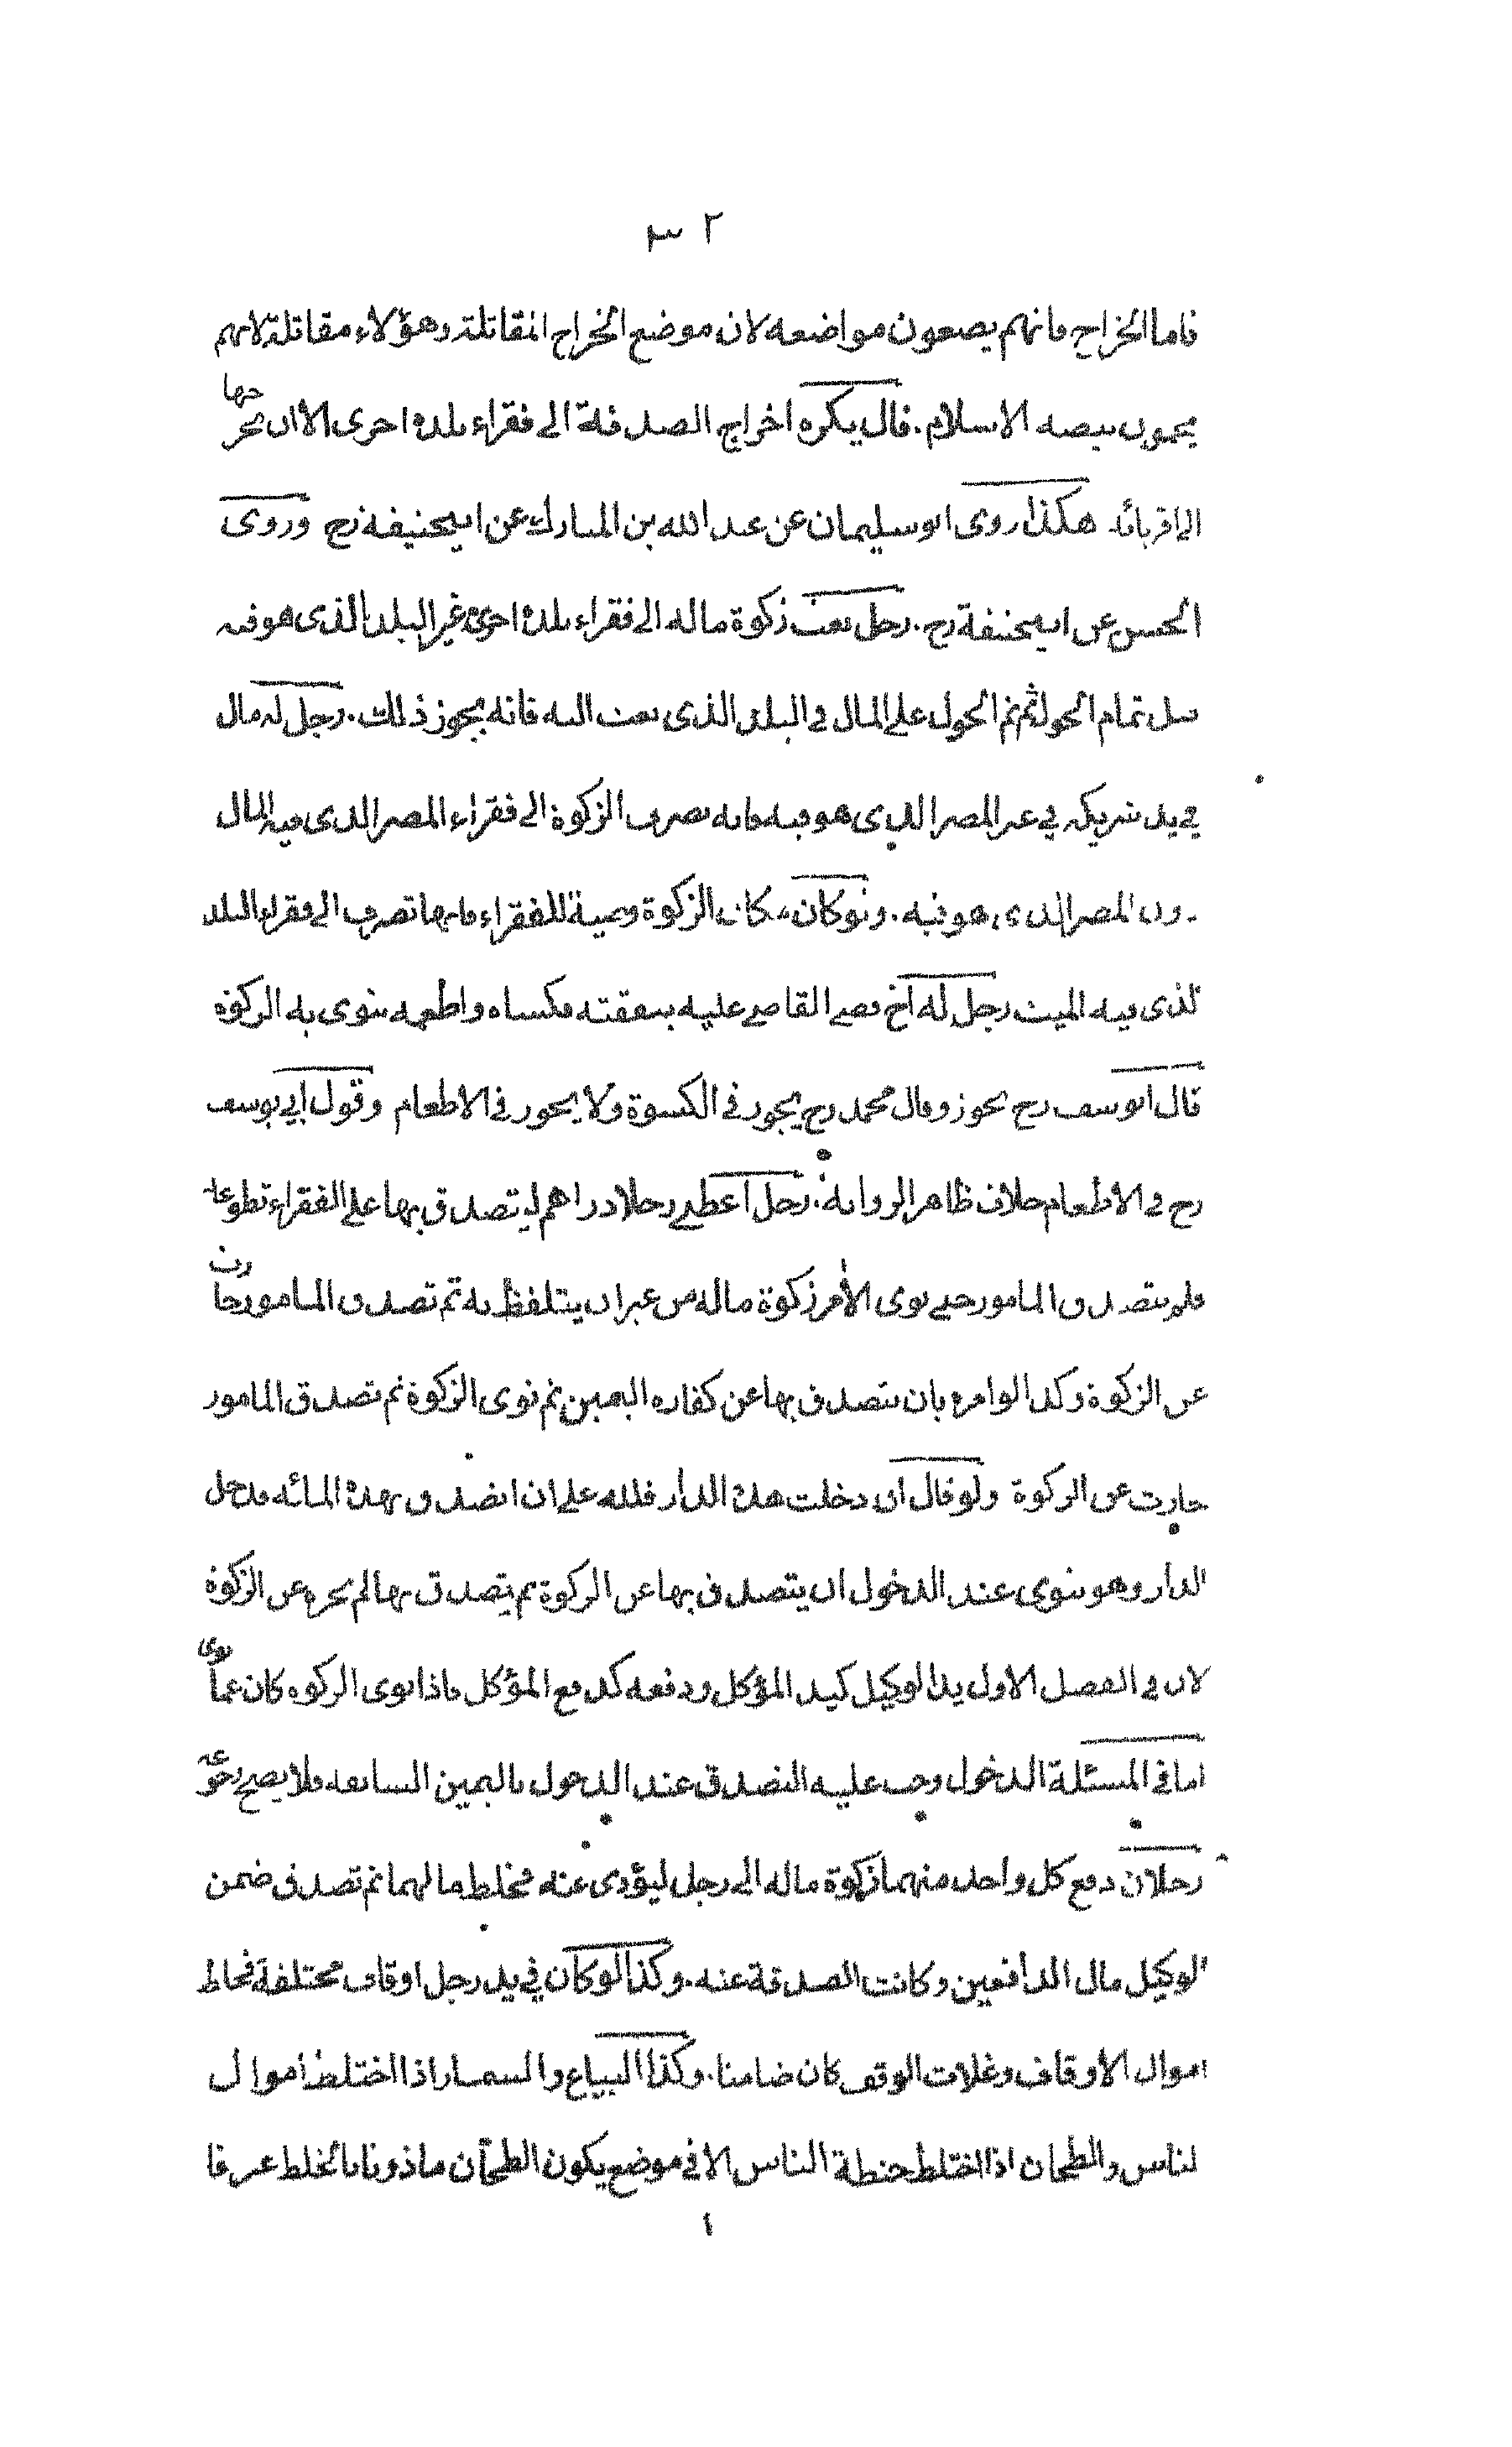 ٣٢
فاما الخراج فانهم يضعون مواضعه لان موضع الخراج المقاتلة وهؤلاء مقاتلة لانهم
يحمون بيضه الاسلام. قال يكره اخراج الصدقة الى فقراء بلدة اخرى الا ان يخرجها
الى اقربائه هكذا روى ابو سليمان عن عبد الله بن المبارك عن ابيحنيفة رح وروى
الحسن عن ابيحنيفة رح. رجل بعث زكوة ماله الى فقراء بلدة اخرى غير البلد الذى هو فيه
قبل تمام الحول ثم تم الحول على المال في البلد الذى بعث اليه فانه يجوز ذلك. رجل له مال
في يد شريكه في غير المصر الذى هو فيه فانه يصرف الزكوة الى فقراء المصر الذى فيه المال
دون المصر الذى هو فيه. ولو كان مكان الزكوة وصية للفقراء فانها تصرف الى فقراء البلد
لذى فيه الميت رجل له اخ قضى القاضى عليه بنفقته فكساه واطعمه ينوى به الزكوة
قال ابويوسف رح يجوز وقال محمد رح يجوز في الكسوة ولا يجوز في الاطعام وقول ابي يوسف
رح في الاطعام خلاف ظاهر الرواية. رجل اعطى رجلا دراهم ليتصدق بها على الفقراء تطوعا
فلم يتصدق المامور حتى نوى الآمر زكوة ماله من غير ان يتلفظ به ثم تصدق المامور جازت
عن الزكوة وكذا لو امره بان يتصدق بها عن كفاره اليمين ثم نوى الزكوة ثم تصدق المامور
جازت عن الزكوة ولو قال ان دخلت هذه الدار فلله على ان اتصدق بهذه المائه فدخل
الدار وهو ينوى عند الدخول ان يتصدق بها عن الزكوة ثم يتصدق بها لم يجزه عن الزكوة
لان في الفصل الاول يد الوكيل كيد المؤكل ودفعه كدفع المؤكل فاذا نوى الزكوه كان عما نوى
اما في المسئلة الدخول وجب عليه التصدق عند الدخول باليمين السابقه فلا يصح رجوعه
رجلان دفع كل واحد منهما زكوة ماله الى رجل ليؤدى عنه فخلط مالهما ثم تصدق ضمن
الوكيل مال الدافعين وكانت الصدقة عنه. وكذا لو كان في يد رجل اوقاف مختلفة فخلط
اموال الأوقاف وغلات الوقف كان ضامنا. وكذا البياع والسمسار اذا اختلط اموال
لناس والطحان اذا اختلط حنطة الناس الا في موضع يكون الطحّان ماذونا بالخلط عرفا
١